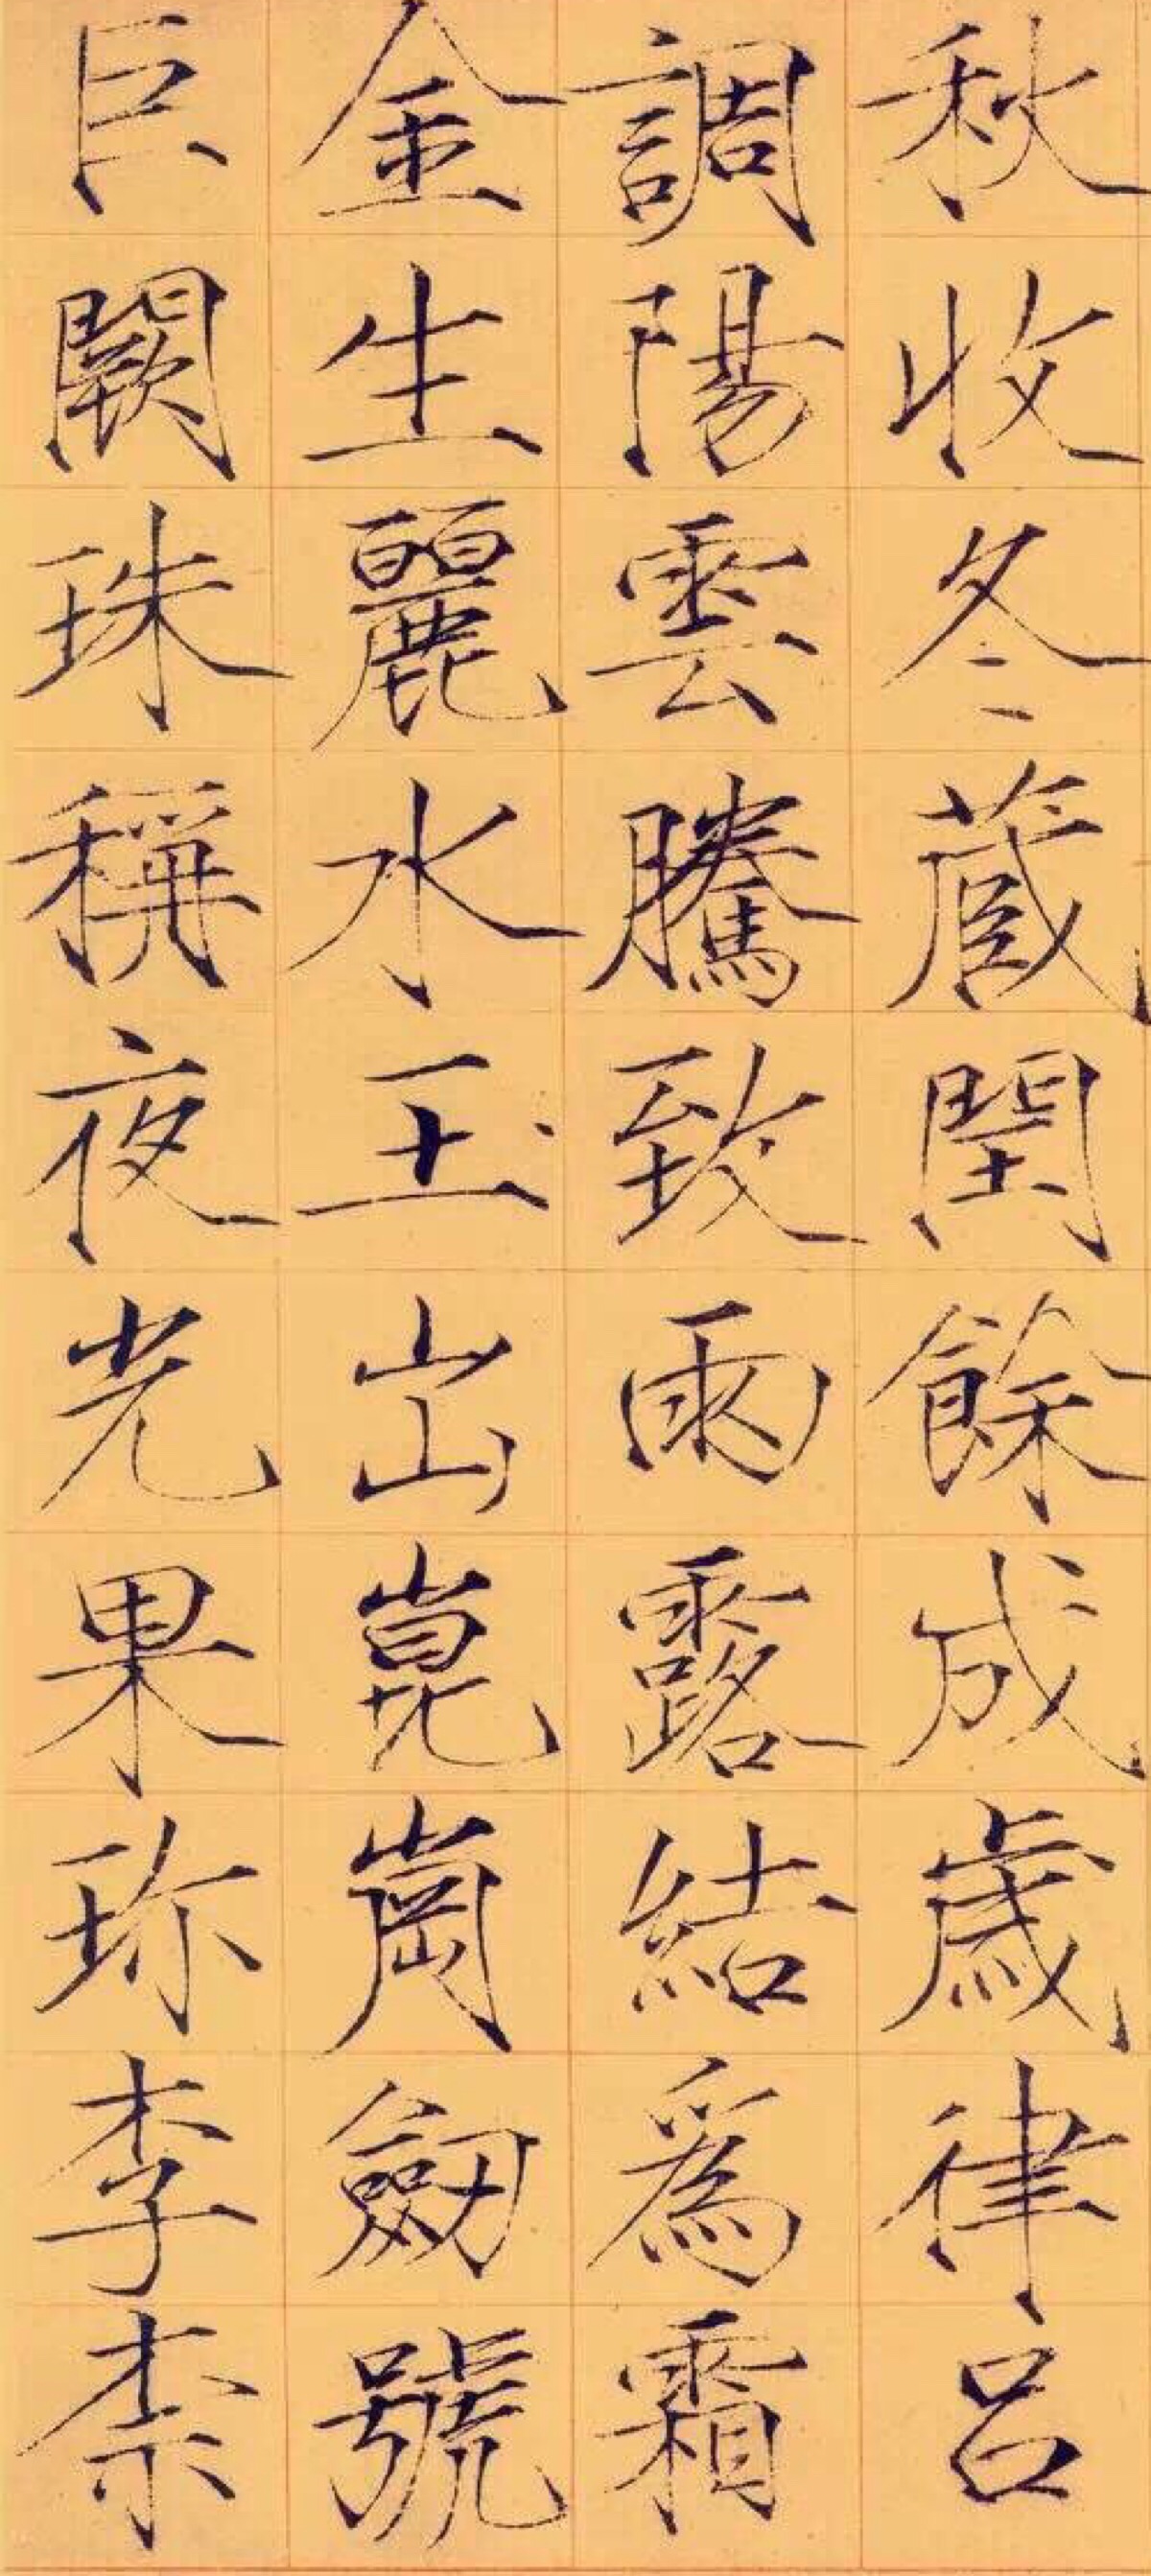 秋收冬蔵閏餘成歲律呂
調陽雲騰致雨露結爲霜
金生麗水玉出崑崗劒號
巨闕珠稱夜光果珎李柰